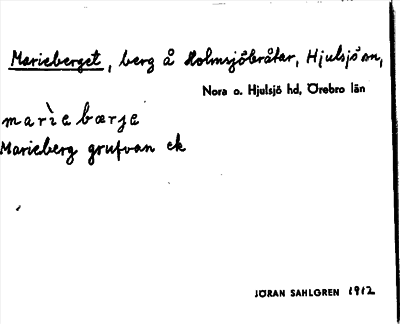 Marieberget, berg å Holmsjöbråtar, Hjulsjö sn,
Nora o. Hjulsjö hd, Örebro län
marìebærje
Marieberg grufvan ek
JÖRAN SAHLGREN 1912